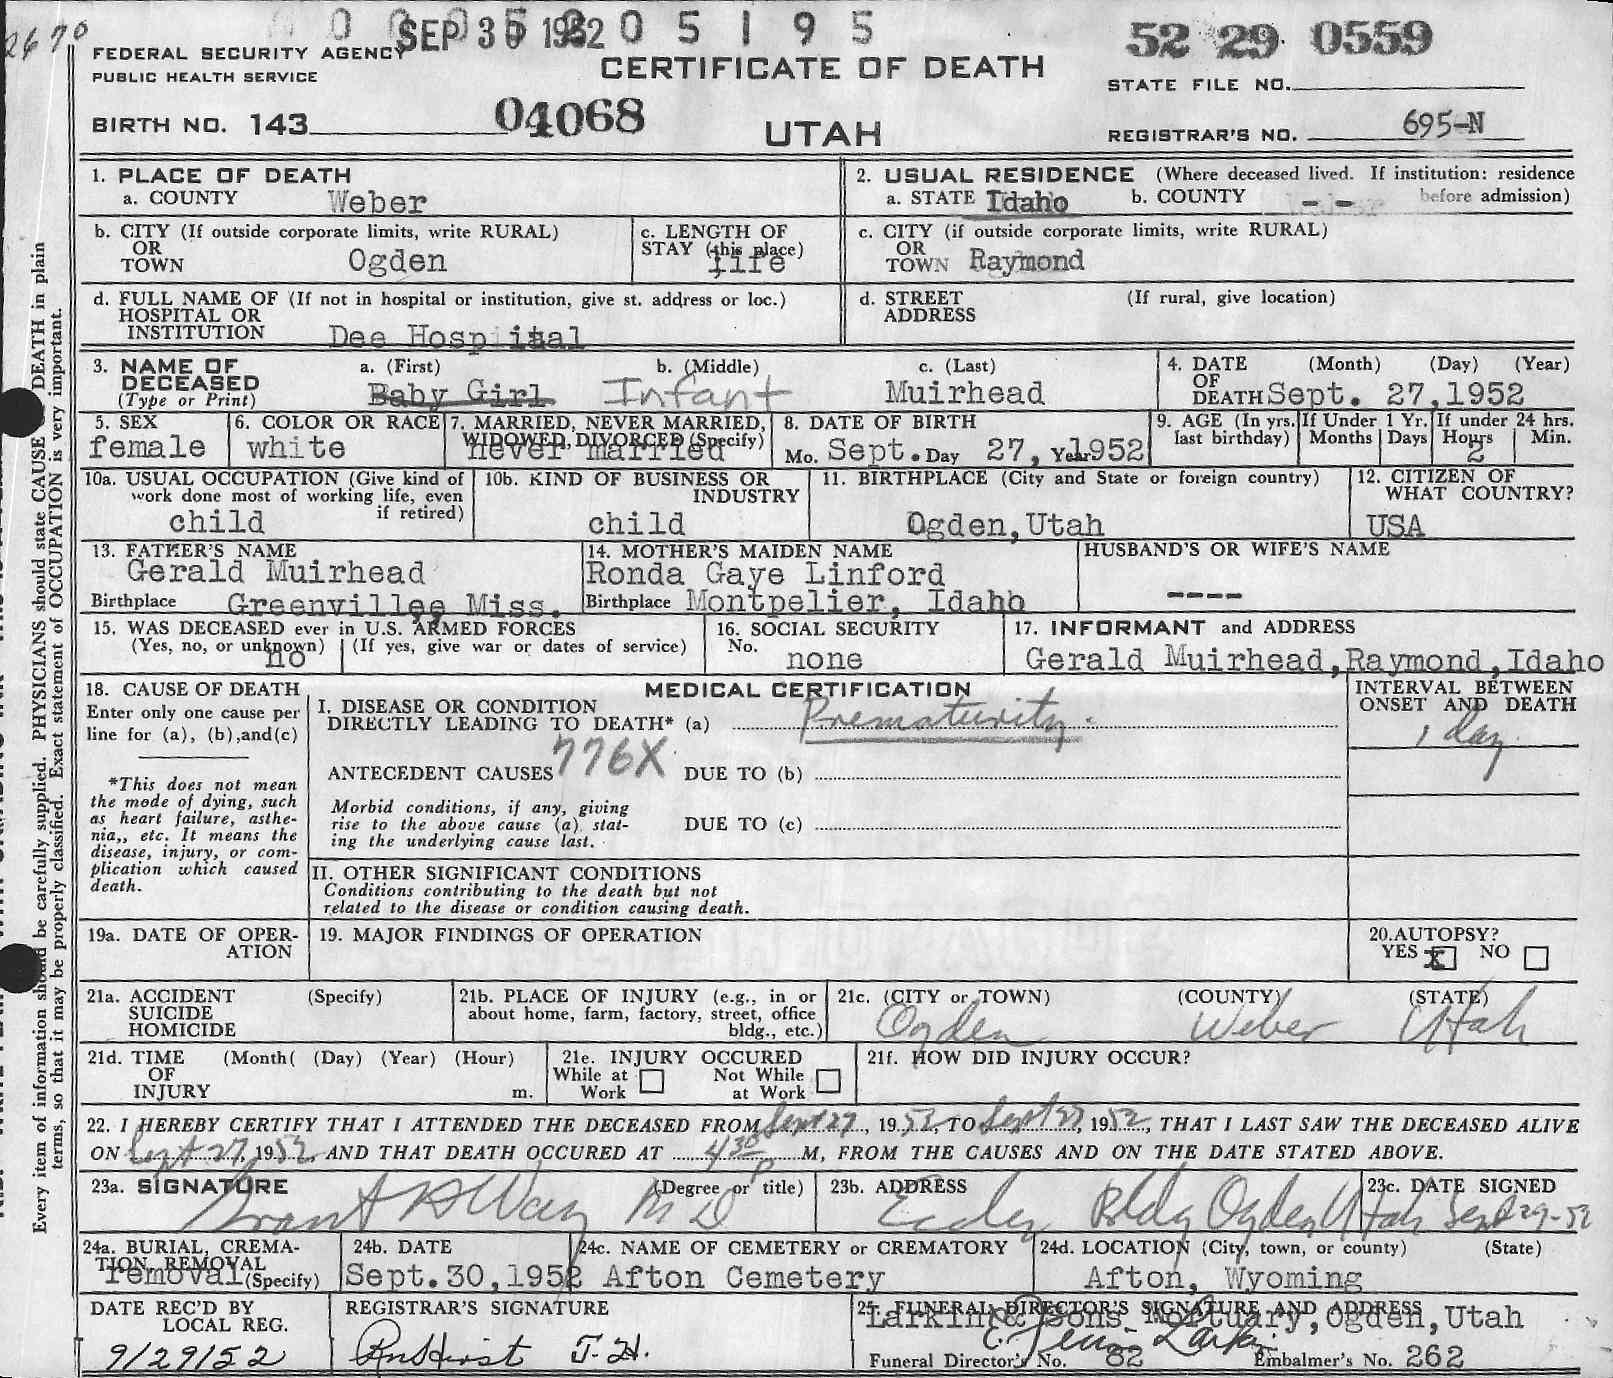 2670
SEP 30 1952 0 5 1 9 5
52 29 0559
FEDERAL SECURITY AGENCY
PUBLIC HEALTH SERVICE
CERTIFICATE OF DEATH
STATE FILE NO.
BIRTH NO. 143 04068
UTAH
REGISTRAR'S NO. 695-N
1. PLACE OF DEATH
a. COUNTY Weber
2. USUAL RESIDENCE (Where deceased lived. If institution: residence
a. STATE Idaho b. COUNTY -- before admission)
b. CITY (If outside corporate limits, write RURAL)
OR
TOWN Ogden
c. LENGTH OF
STAY (this place)
life
c. CITY (if outside corporate limits, write RURAL)
OR
TOWN Raymond
d. FULL NAME OF (If not in hospital or institution, give st. address or loc.)
HOSPITAL OR
INSTITUTION Dee Hospital
d. STREET (If rural, give location)
ADDRESS
3. NAME OF a. (First) b. (Middle) c. (Last)
DECEASED
(Type or Print) Baby Girl Infant Muirhead
4. DATE (Month) (Day) (Year)
OF
DEATH Sept. 27, 1952
5. SEX
female
6. COLOR OR RACE
white
7. MARRIED, NEVER MARRIED,
WIDOWED, DIVORCED (Specify)
never married
8. DATE OF BIRTH
Mo. Sept. Day 27, Year 1952
9. AGE (In yrs. If Under 1 Yr. If under 24 hrs.
last birthday) Months Days Hours Min.
2
10a. USUAL OCCUPATION (Give kind of
work done most of working life, even
if retired)
child
10b. KIND OF BUSINESS OR
INDUSTRY
child
11. BIRTHPLACE (City and State or foreign country)
Ogden, Utah
12. CITIZEN OF
WHAT COUNTRY?
USA
13. FATHER'S NAME
Gerald Muirhead
Birthplace Greenvillee, Miss.
14. MOTHER'S MAIDEN NAME
Ronda Gaye Linford
Birthplace Montpelier, Idaho
HUSBAND'S OR WIFE'S NAME
----
15. WAS DECEASED ever in U.S. ARMED FORCES
(Yes, no, or unknown) (If yes, give war or dates of service)
no
16. SOCIAL SECURITY
No.
none
17. INFORMANT and ADDRESS
Gerald Muirhead, Raymond, Idaho
18. CAUSE OF DEATH
Enter only one cause per
line for (a), (b), and (c)
*This does not mean
the mode of dying, such
as heart failure, asthe-
nia,, etc. It means the
disease, injury, or com-
plication which caused
death.
MEDICAL CERTIFICATION
I. DISEASE OR CONDITION
DIRECTLY LEADING TO DEATH* (a) Prematurity.
776X
ANTECEDENT CAUSES DUE TO (b)
Morbid conditions, if any, giving
rise to the above cause (a) stat- DUE TO (c)
ing the underlying cause last.
II. OTHER SIGNIFICANT CONDITIONS
Conditions contributing to the death but not
related to the disease or condition causing death.
INTERVAL BETWEEN
ONSET AND DEATH
1 day
19a. DATE OF OPER-
ATION
19. MAJOR FINDINGS OF OPERATION
20. AUTOPSY?
YES X NO
21a. ACCIDENT (Specify)
SUICIDE
HOMICIDE
21b. PLACE OF INJURY (e.g., in or
about home, farm, factory, street, office
bldg., etc.)
21c. (CITY or TOWN) (COUNTY) (STATE)
Ogden Weber Utah
21d. TIME (Month( (Day) (Year) (Hour)
OF
INJURY m.
21e. INJURY OCCURED
While at Not While
Work at Work
21f. HOW DID INJURY OCCUR?
22. I HEREBY CERTIFY THAT I ATTENDED THE DECEASED FROM Sept 27, 1952, TO Sept 27, 1952, THAT I LAST SAW THE DECEASED ALIVE
ON Sept 27, 1952, AND THAT DEATH OCCURED AT 4 30 P M, FROM THE CAUSES AND ON THE DATE STATED ABOVE.
23a. SIGNATURE (Degree or title)
Grant H Way M D
23b. ADDRESS
Eccles Bldg Ogden Utah
23c. DATE SIGNED
Sept 29-52
24a. BURIAL, CREMA-
TION, REMOVAL
removal (Specify)
24b. DATE
Sept. 30, 1952
24c. NAME OF CEMETERY or CREMATORY
Afton Cemetery
24d. LOCATION (City, town, or county) (State)
Afton, Wyoming
DATE REC'D BY
LOCAL REG.
9/29/52
REGISTRAR'S SIGNATURE
J.H.
25. FUNERAL DIRECTOR'S SIGNATURE AND ADDRESS
Larkin & Sons Mortuary, Ogden, Utah
Larkin
Funeral Director's No. 82 Embalmer's No. 262
Every item of information should be carefully supplied. PHYSICIANS should state CAUSE OF DEATH in plain
terms, so that it may be properly classified. Exact statement of OCCUPATION is very important.